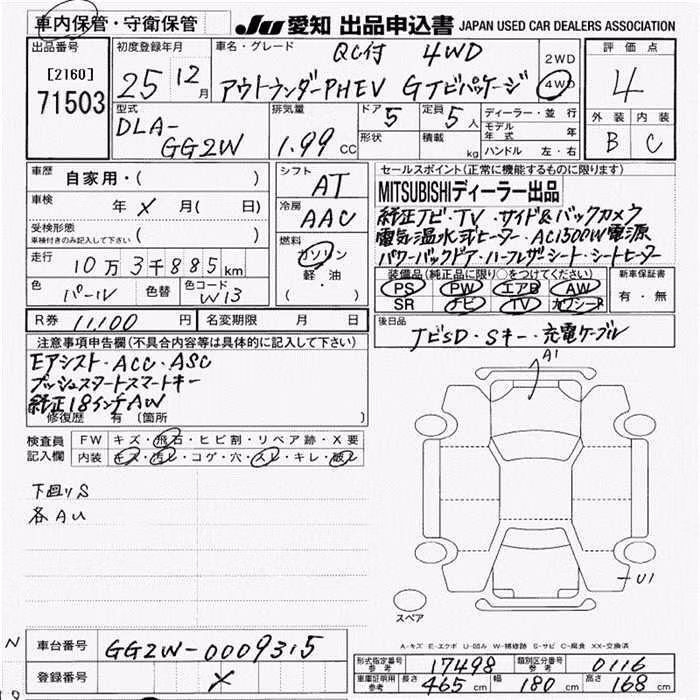 車内保管・守衛保管
JU 愛知 出品申込書 JAPAN USED CAR DEALERS ASSOCIATION
出品番号
[2160]
71503
初度登録年月
25 12月
車名・グレード
QC付 4WD
アウトランダーPHEV Gナビパッケージ
2WD
4WD
評価点
4
外装 内装
B C
型式
DLA-
GG2W
排気量
1.99 CC
ドア 5
形状
定員 5人
積載 kg
ディーラー・並行
モデル年式 年
ハンドル 左・右
車歴 自家用・( )
車検 年 X 月( 日)
受検形態
車検付きのみ記入して下さい ( )
走行 10万3千885km
色 パール 色替 色コード W13
シフト AT
冷房 AAC
燃料
ガソリン
軽・油
( )
セールスポイント(正常に機能するものに限ります)
MITSUBISHIディーラー出品
純正ナビ・TV・サイド&バックカメラ
電気温水式ヒーター・AC1500W電源
パワーバックドア・ハーフレザーシート・シートヒーター
装備品(純正品に限り○をつけてください)
PS PW エアB AW
SR ナビ TV カワシート
新車保証書
有・無
R券 11,100円 名変期限 月 日
後日品
ナビSD・Sキー・充電ケーブル
注意事項申告欄(不具合内容等は具体的に記入して下さい)
Eアシスト・ACC・ASC
プッシュスタートスマートキー
純正18インチAW
修復歴 有(箇所 )
検査員記入欄
FW キズ・飛石・ヒビ割・リペア跡・X要
内装 キズ・汚レ・コゲ・穴・スレ・キレ・破レ
下回りS
各AU
A1
U1
スペア
A-キズ E-エクボ U-凹み W-補修跡 S-サビ C-腐食 XX-交換済
N
車台番号 GG2W-0009315
登録番号 X
形式指定番号 参考 17498 類別区分番号 参考 0116
車庫証明用 参考 長さ 465cm 幅 180cm 高さ 168cm